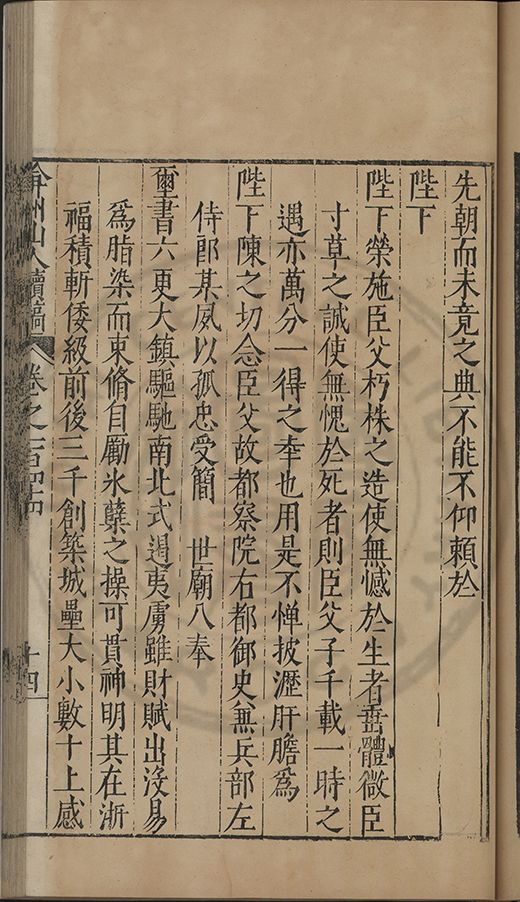 先朝而未竟之典不能不仰賴於
陛下
陛下榮施臣父朽株之造使無憾於生者垂體微臣
寸草之誠使無愧於死者則臣父子千載一時之
遇亦萬分一得之幸也用是不憚披瀝肝膽爲
陛下陳之切念臣父故都察院右都御史兼兵部左
侍郎某夙以孤忠受簡 世廟八奉
璽書六更大鎮驅馳南北式遏夷虜雖財賦出沒易
爲脂染而束脩自勵氷櫱之操可貫神明其在浙
福積斬倭級前後三千創築城壘大小數十上感
弇州山人續稿 卷之一百四十四 十四